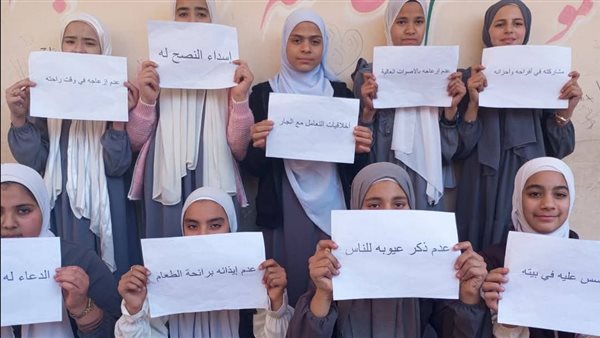 مشاركته في أفراحه وأحزانه
عدم إزعاجه بالأصوات العالية
أخلاقيات التعامل مع الجار
إسداء النصح له
عدم إزعاجه في وقت راحته
سس عليه في بيته
عدم ذكر عيوبه للناس
عدم إيذائه برائحة الطعام
الدعاء له